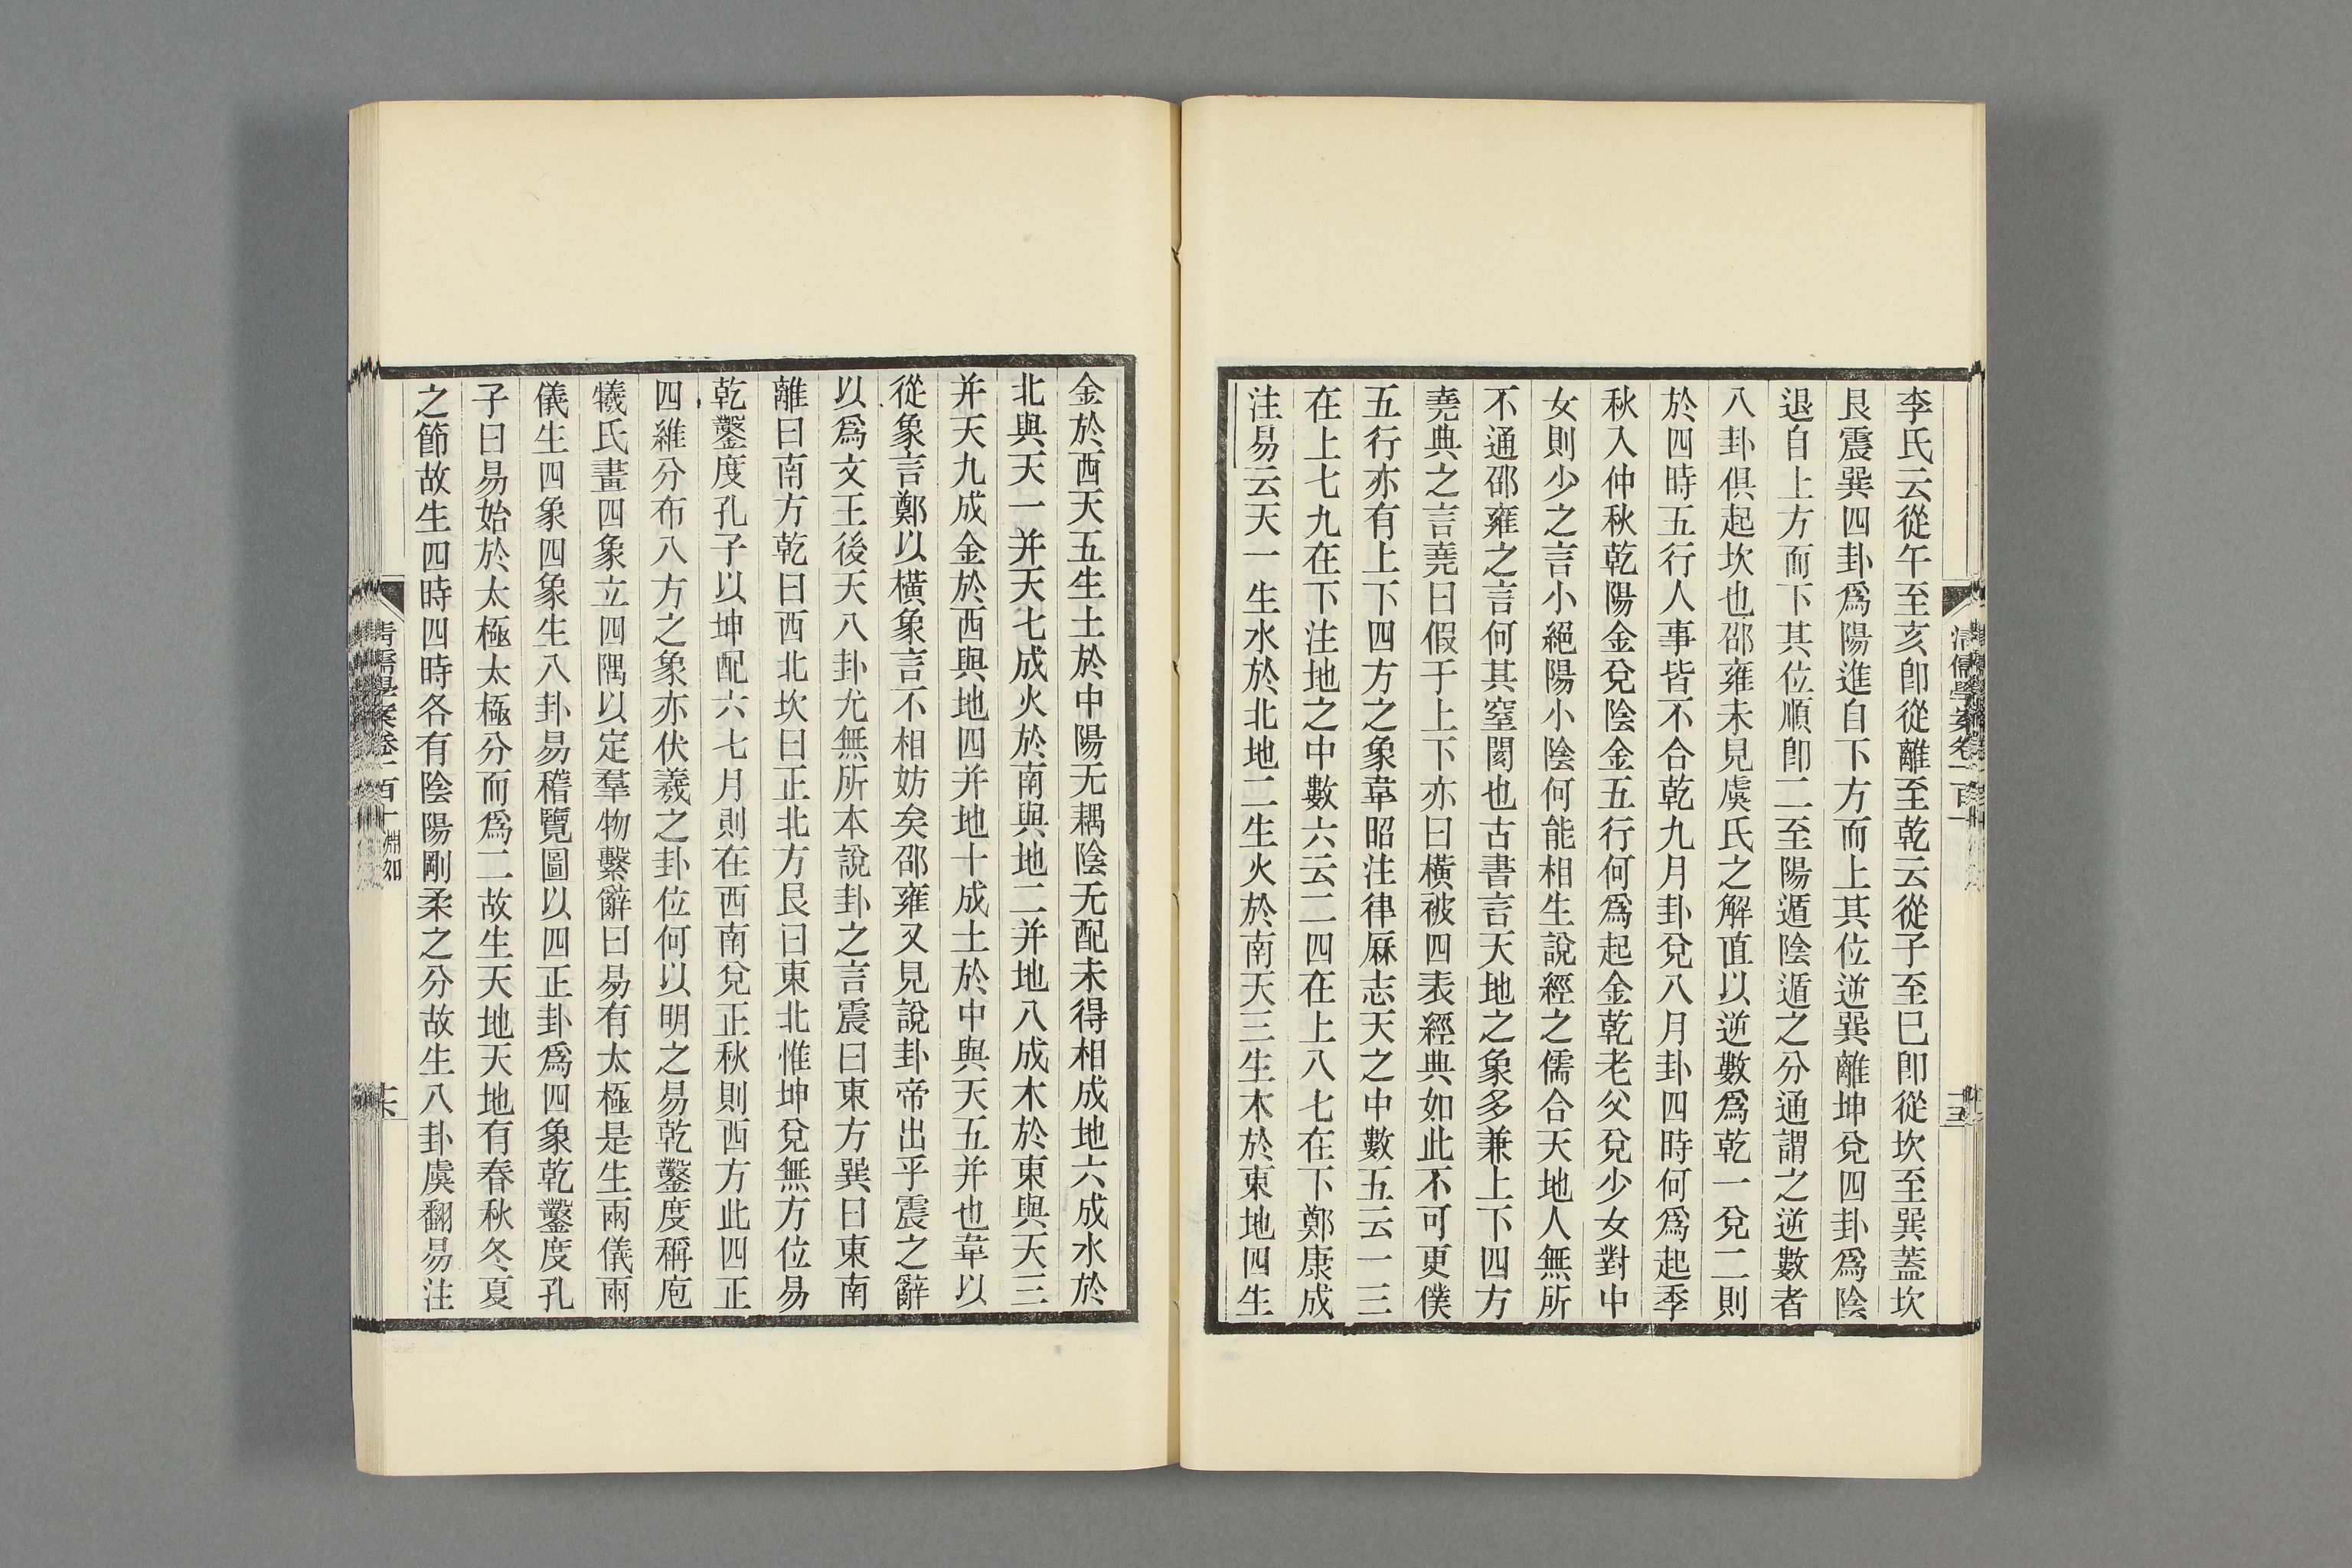 李氏云從午至亥卽從離至乾云從子至巳卽從坎至巽蓋坎
艮震巽四卦爲陽進自下方而上其位逆巽離坤兌四卦爲陰
退自上方而下其位順卽二至陽遁陰遁之分通謂之逆數者
八卦俱起坎也邵雍未見虞氏之解直以逆數爲乾一兌二則
於四時五行人事皆不合乾九月卦兌八月卦四時何爲起季
秋入仲秋乾陽金兌陰金五行何爲起金乾老父兌少女對中
女則少之言小絕陽小陰何能相生說經之儒合天地人無所
不通邵雍之言何其窒閡也古書言天地之象多兼上下四方
堯典之言堯曰假于上下亦曰橫被四表經典如此不可更僕
五行亦有上下四方之象韋昭注律厤志天之中數五云一三
在上七九在下注地之中數六云二四在上八七在下鄭康成
注易云天一生水於北地二生火於南天三生木於東地四生
金於西天五生土於中陽无耦陰无配未得相成地六成水於
北與天一并天七成火於南與地二并地八成木於東與天三
并天九成金於西與地四并地十成土於中與天五并也韋以
從象言鄭以橫象言不相妨矣邵雍又見說卦帝出乎震之辭
以爲文王後天八卦尤無所本說卦之言震曰東方巽曰東南
離曰南方乾曰西北坎曰正北方艮曰東北惟坤兌無方位易
乾鑿度孔子以坤配六七月則在西南兌正秋則西方此四正
四維分布八方之象亦伏羲之卦位何以明之易乾鑿度稱庖
犧氏畫四象立四隅以定羣物繫辭曰易有太極是生兩儀兩
儀生四象四象生八卦易稽覽圖以四正卦爲四象乾鑿度孔
子曰易始於太極太極分而爲二故生天地天地有春秋冬夏
之節故生四時四時各有陰陽剛柔之分故生八卦虞翻易注
清儒學案卷一百十 淵如